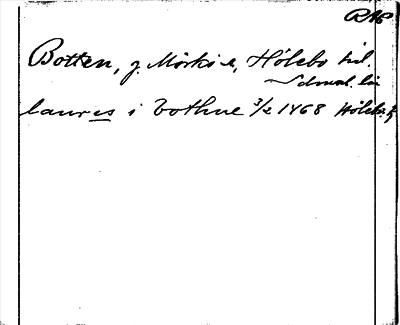 RAp
Botten, g. Mörkö s, Hölebo hd.
Södmanl. län
laur es i bothne 3/2 1468 Hölebo